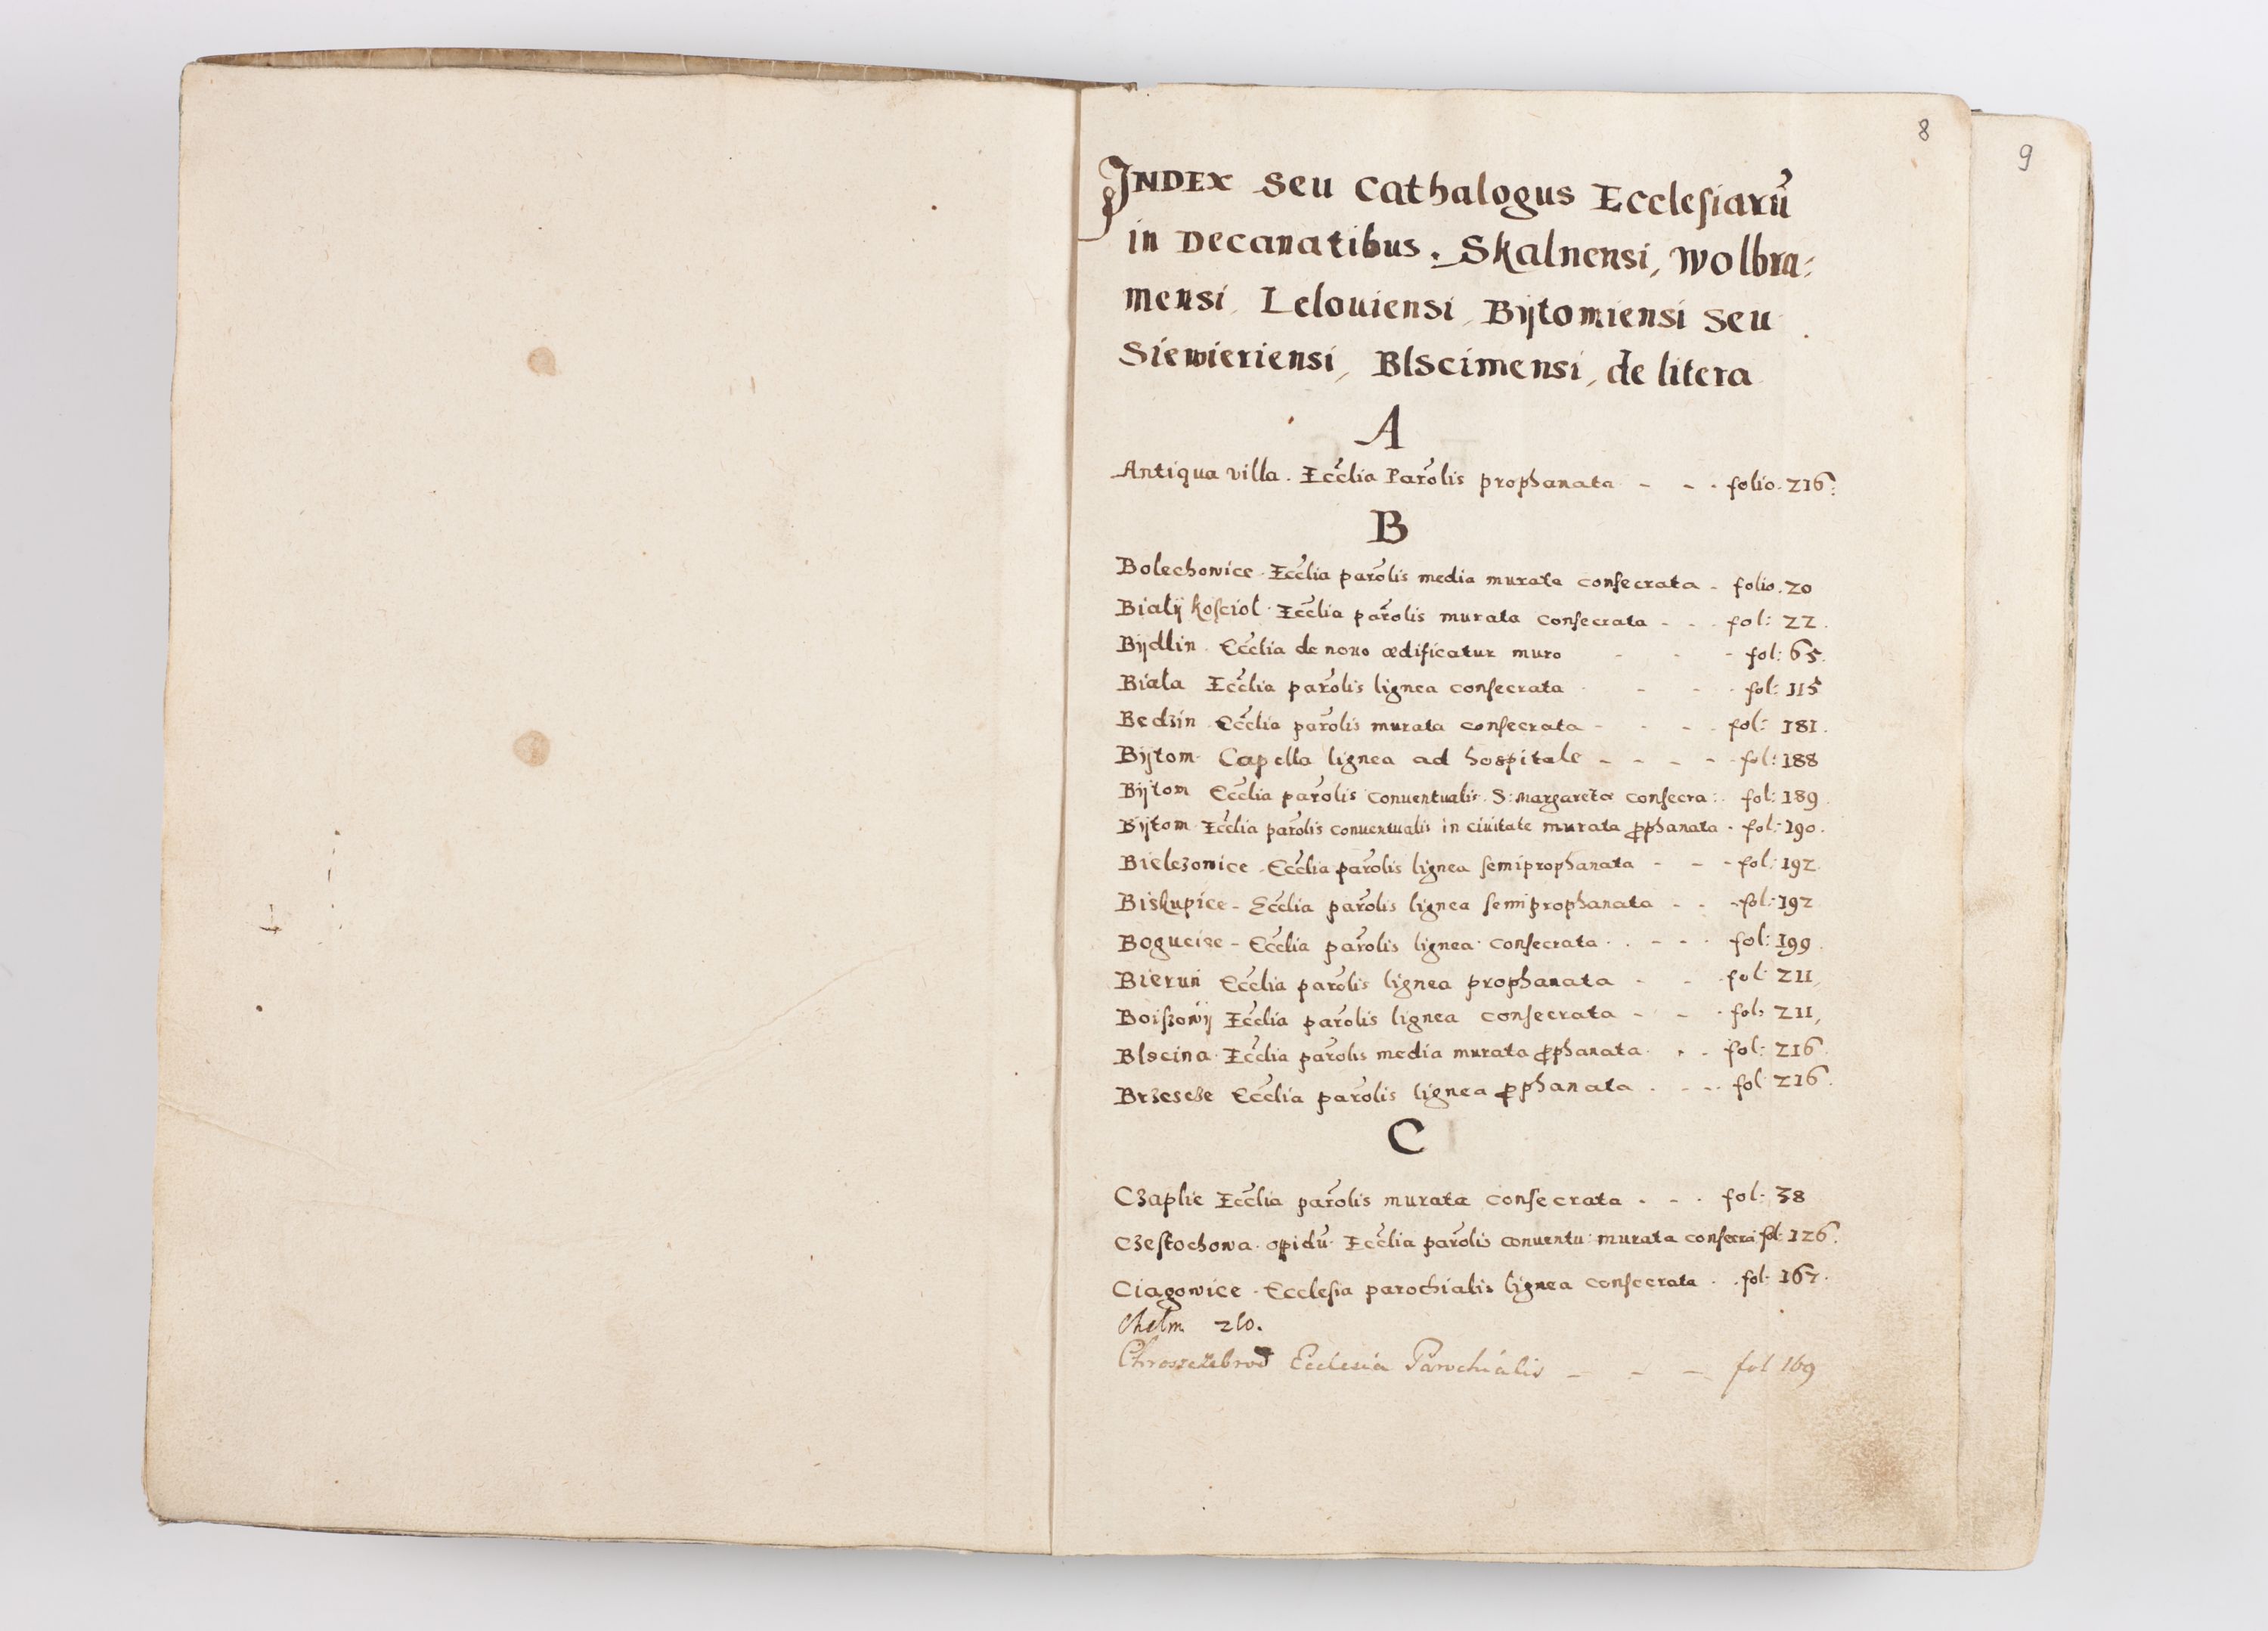 8
9
INDEX seu Cathalogus Ecclesiarũ
in Decanatibus. Skalnensi, Wolbra:
mensi, Lelouiensi, Bÿtomiensi seu
Siewieriensi, Blscimensi, de litera
A
Antiqua villa. Ecc̃lia Par̃olis prophanata - - - folio. 216:
B
Bolechowice. Ecc̃lia par̃olis media murata consecrata - folio. 20
Białÿ kościoł. Ecc̃lia par̃olis murata consecrata - - - fol: 22.
Bÿdlin. Ecc̃lia de nouo ædificatur muro - - - fol: 65.
Biała Ecc̃lia par̃olis lignea consecrata - - - fol: 115
Bedzin Ecc̃lia par̃olis murata consecrata - - - fol: 181.
Bÿtom. Capella lignea ad hospitale - - - - - fol: 188
Bÿtom Ecc̃lia par̃olis conuentualis. S: Margaretæ consecra: fol: 189
Bÿtom. Ecc̃lia par̃olis conuentualis in ciuitate murata ꝓphanata - fol: 190.
Bielezowice - Ecc̃lia par̃olis lignea semiprophanata - - - fol: 192
Biskupice - Ecc̃lia par̃olis lignea semiprophanata - - - fol: 192
Bogucice - Ecc̃lia par̃olis lignea consecrata - - - fol: 199.
Bieruń Ecc̃lia par̃olis lignea prophanata - - - fol 211,
Boiszowÿ Ecc̃lia par̃olis lignea consecrata - - - fol: 211,
Blscina. Ecc̃lia par̃olis media murata ꝓphanata. - - fol: 216.
Brzescze Ecc̃lia par̃olis lignea ꝓphanata - - - fol 216.
C
Czaplie Ecc̃lia par̃olis murata consecrata - - - fol: 38
Czestochowa. opidũ. Ecc̃lia par̃olis conuentu: murata consecra fol: 126.
Ciagowice - Ecclesia parochialis lignea consecrata - - fol: 167.
Chelm 210.
Chroszczebrod Ecclesia Parochialis - - - fol 169